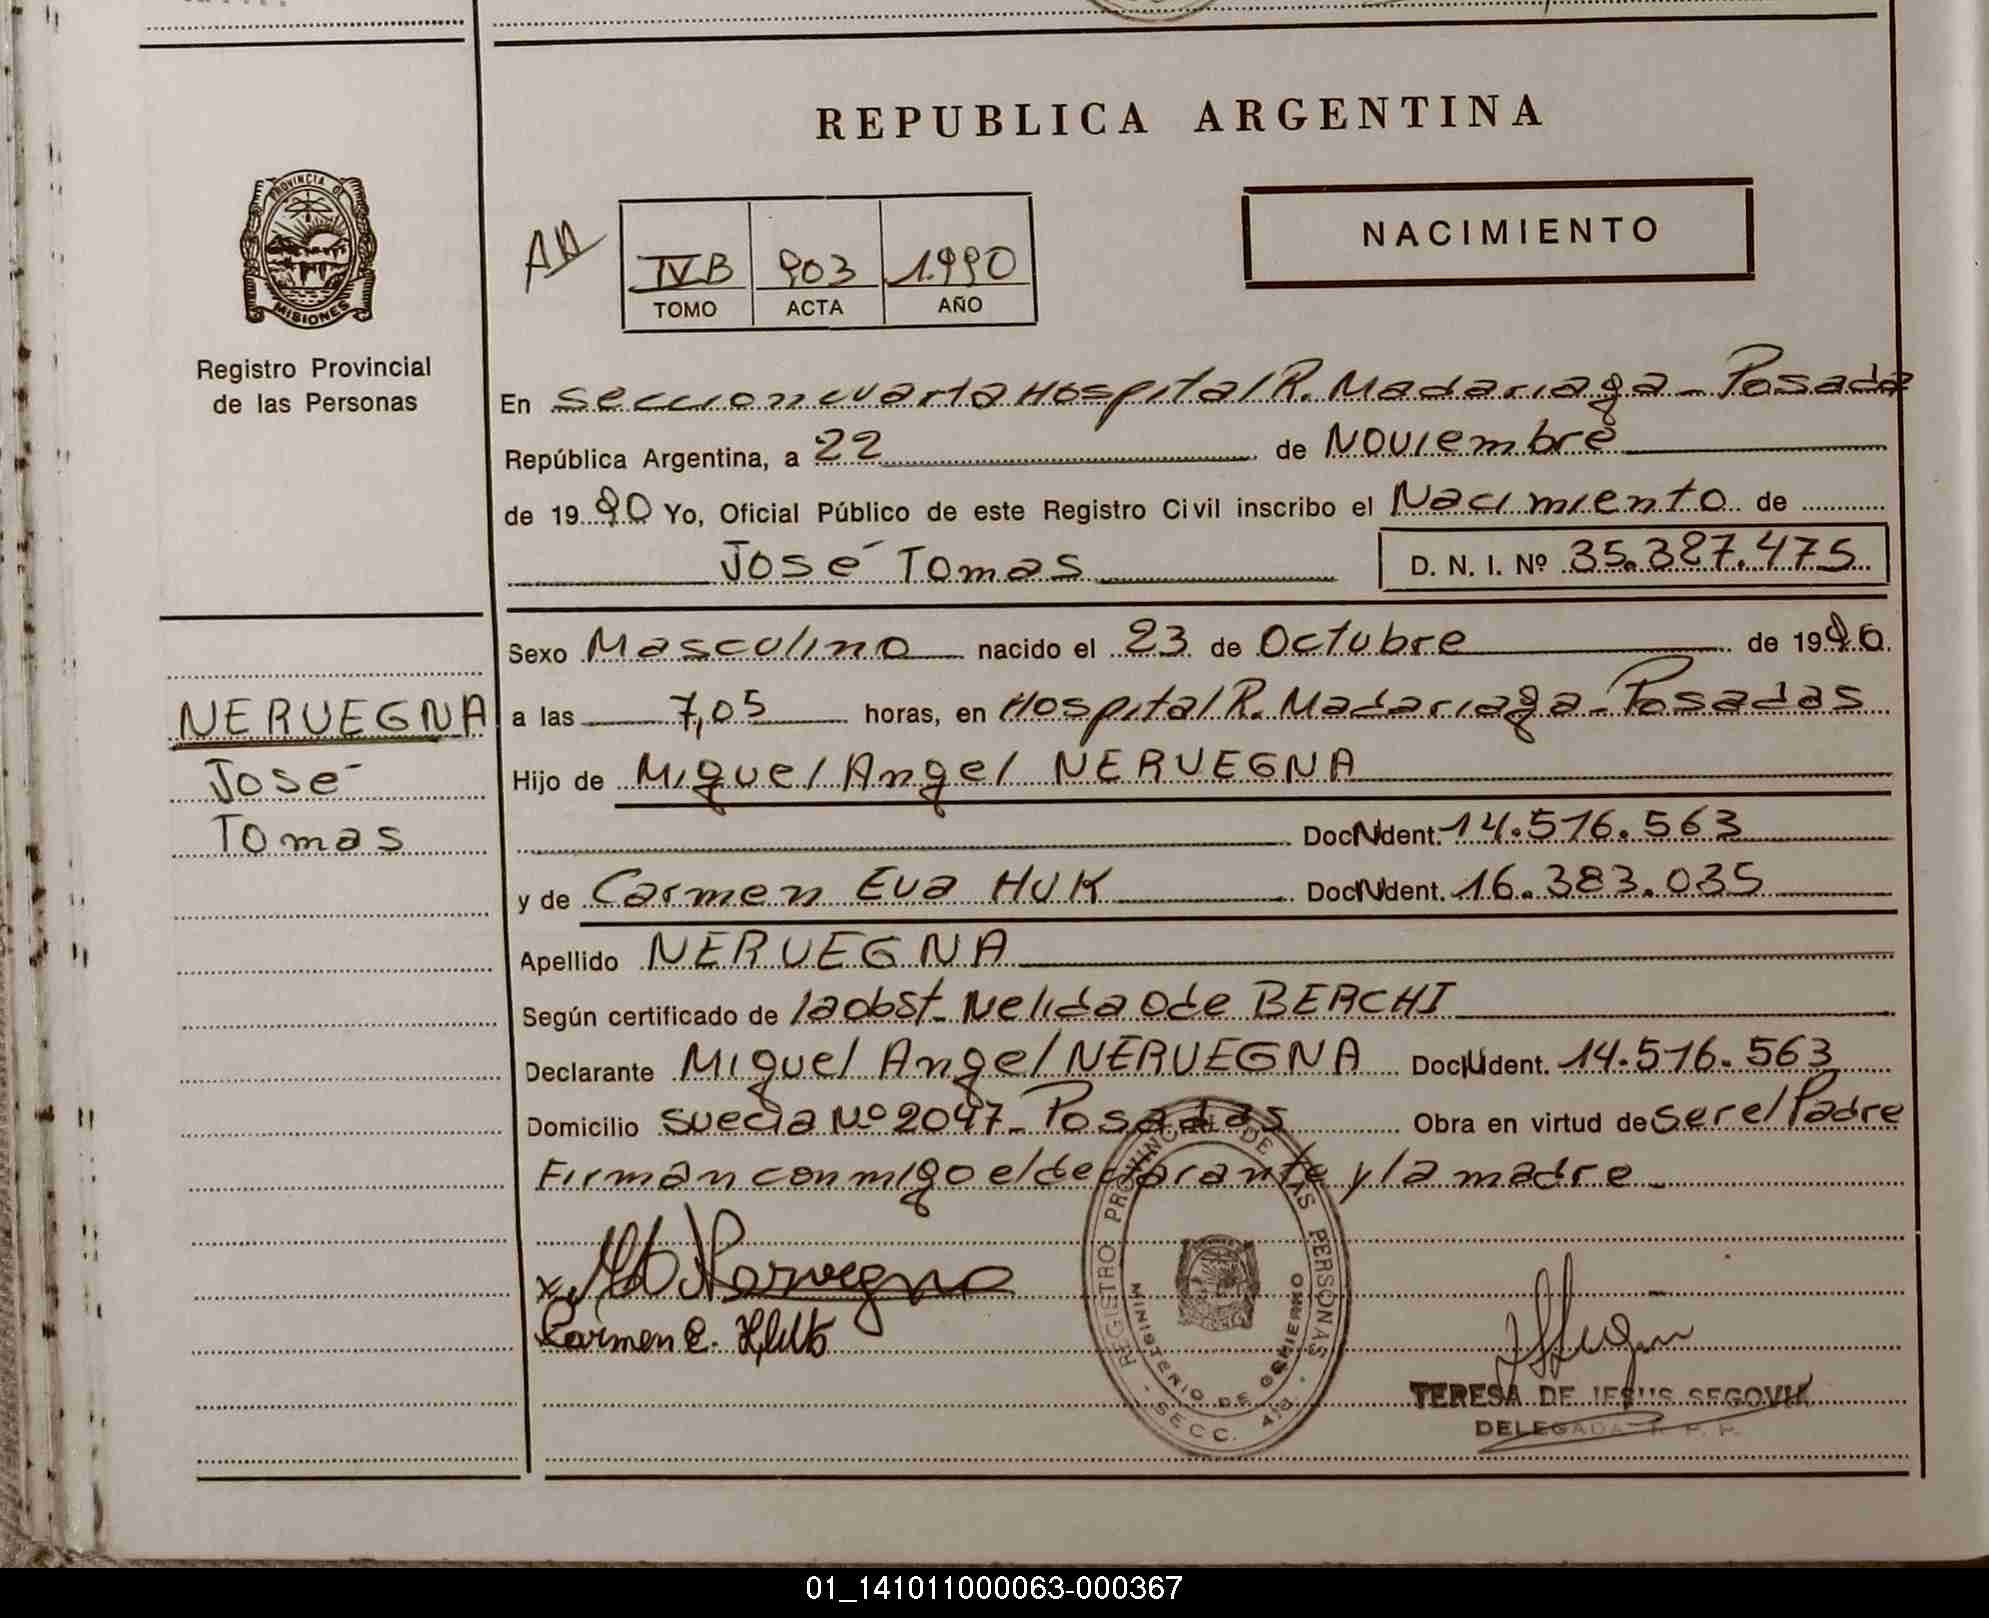 REPUBLICA ARGENTINA
PROVINCIA DE
MISIONES
Registro Provincial
de las Personas
NERVEGNA
José
Tomas
IVB 903 1.990
TOMO ACTA AÑO
NACIMIENTO
En seccion cuarta Hospital R. Madariaga - Posadas
República Argentina, a 22 de Noviembre
de 1990 Yo, Oficial Público de este Registro Civil inscribo el Nacimiento de
José Tomas D. N. I. Nº 35.387.475
Sexo Masculino nacido el 23 de Octubre de 1990
a las 7,05 horas, en Hospital R. Madariaga - Posadas
Hijo de Miguel Angel NERVEGNA
Doc. Ident. 14.516.563
y de Carmen Eva HUK Doc. Ident. 16.383.035
Apellido NERVEGNA
Según certificado de la obst. Nelida O de BERCHI
Declarante Miguel Angel NERVEGNA Doc. Ident. 14.516.563
Domicilio suecia Nº 2047 - Posadas Obra en virtud de ser el Padre
Firman conmigo el declarante y la madre -
x Nervegna
Carmen E.
REGISTRO PROVINCIAL DE LAS PERSONAS
MINISTERIO DE GOBIERNO
SECC. 4ta.
TERESA DE JESUS SEGOVIA
DELEGADA R. P. P.
01_141011000063-000367